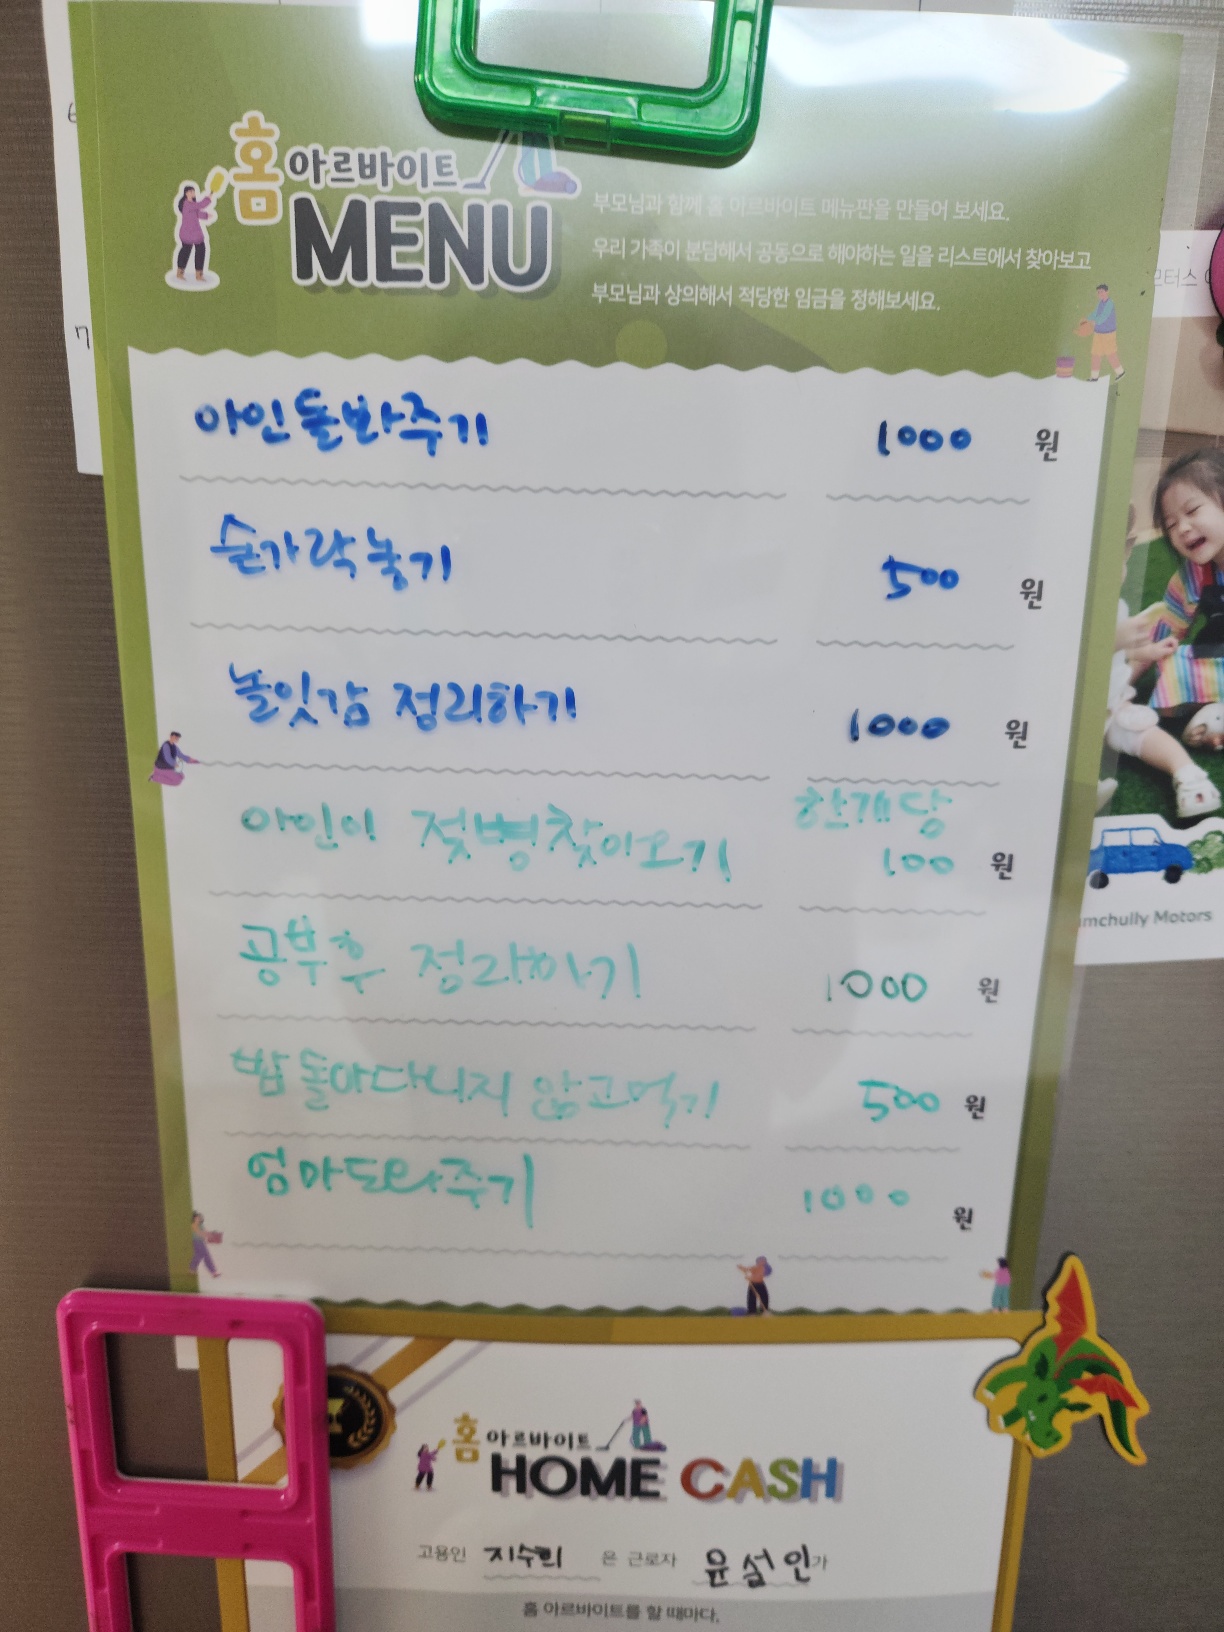 홈 아르바이트
MENU
부모님과 함께 홈 아르바이트 메뉴판을 만들어 보세요.
우리 가족이 분담해서 공동으로 해야하는 일을 리스트에서 찾아보고
부모님과 상의해서 적당한 임금을 정해보세요.
아인돌봐주기 1000 원
숟가락놓기 500 원
놀잇감 정리하기 1000 원
한개당
아인이 젖병찾아오기 100 원
공부후 정리하기 1000 원
밥 돌아다니지 않고먹기 500 원
엄마도와주기 1000 원
모터스
mchully Motors
홈 아르바이트
HOME CASH
고용인 지수희 은 근로자 윤설인가
홈 아르바이트를 할 때마다,